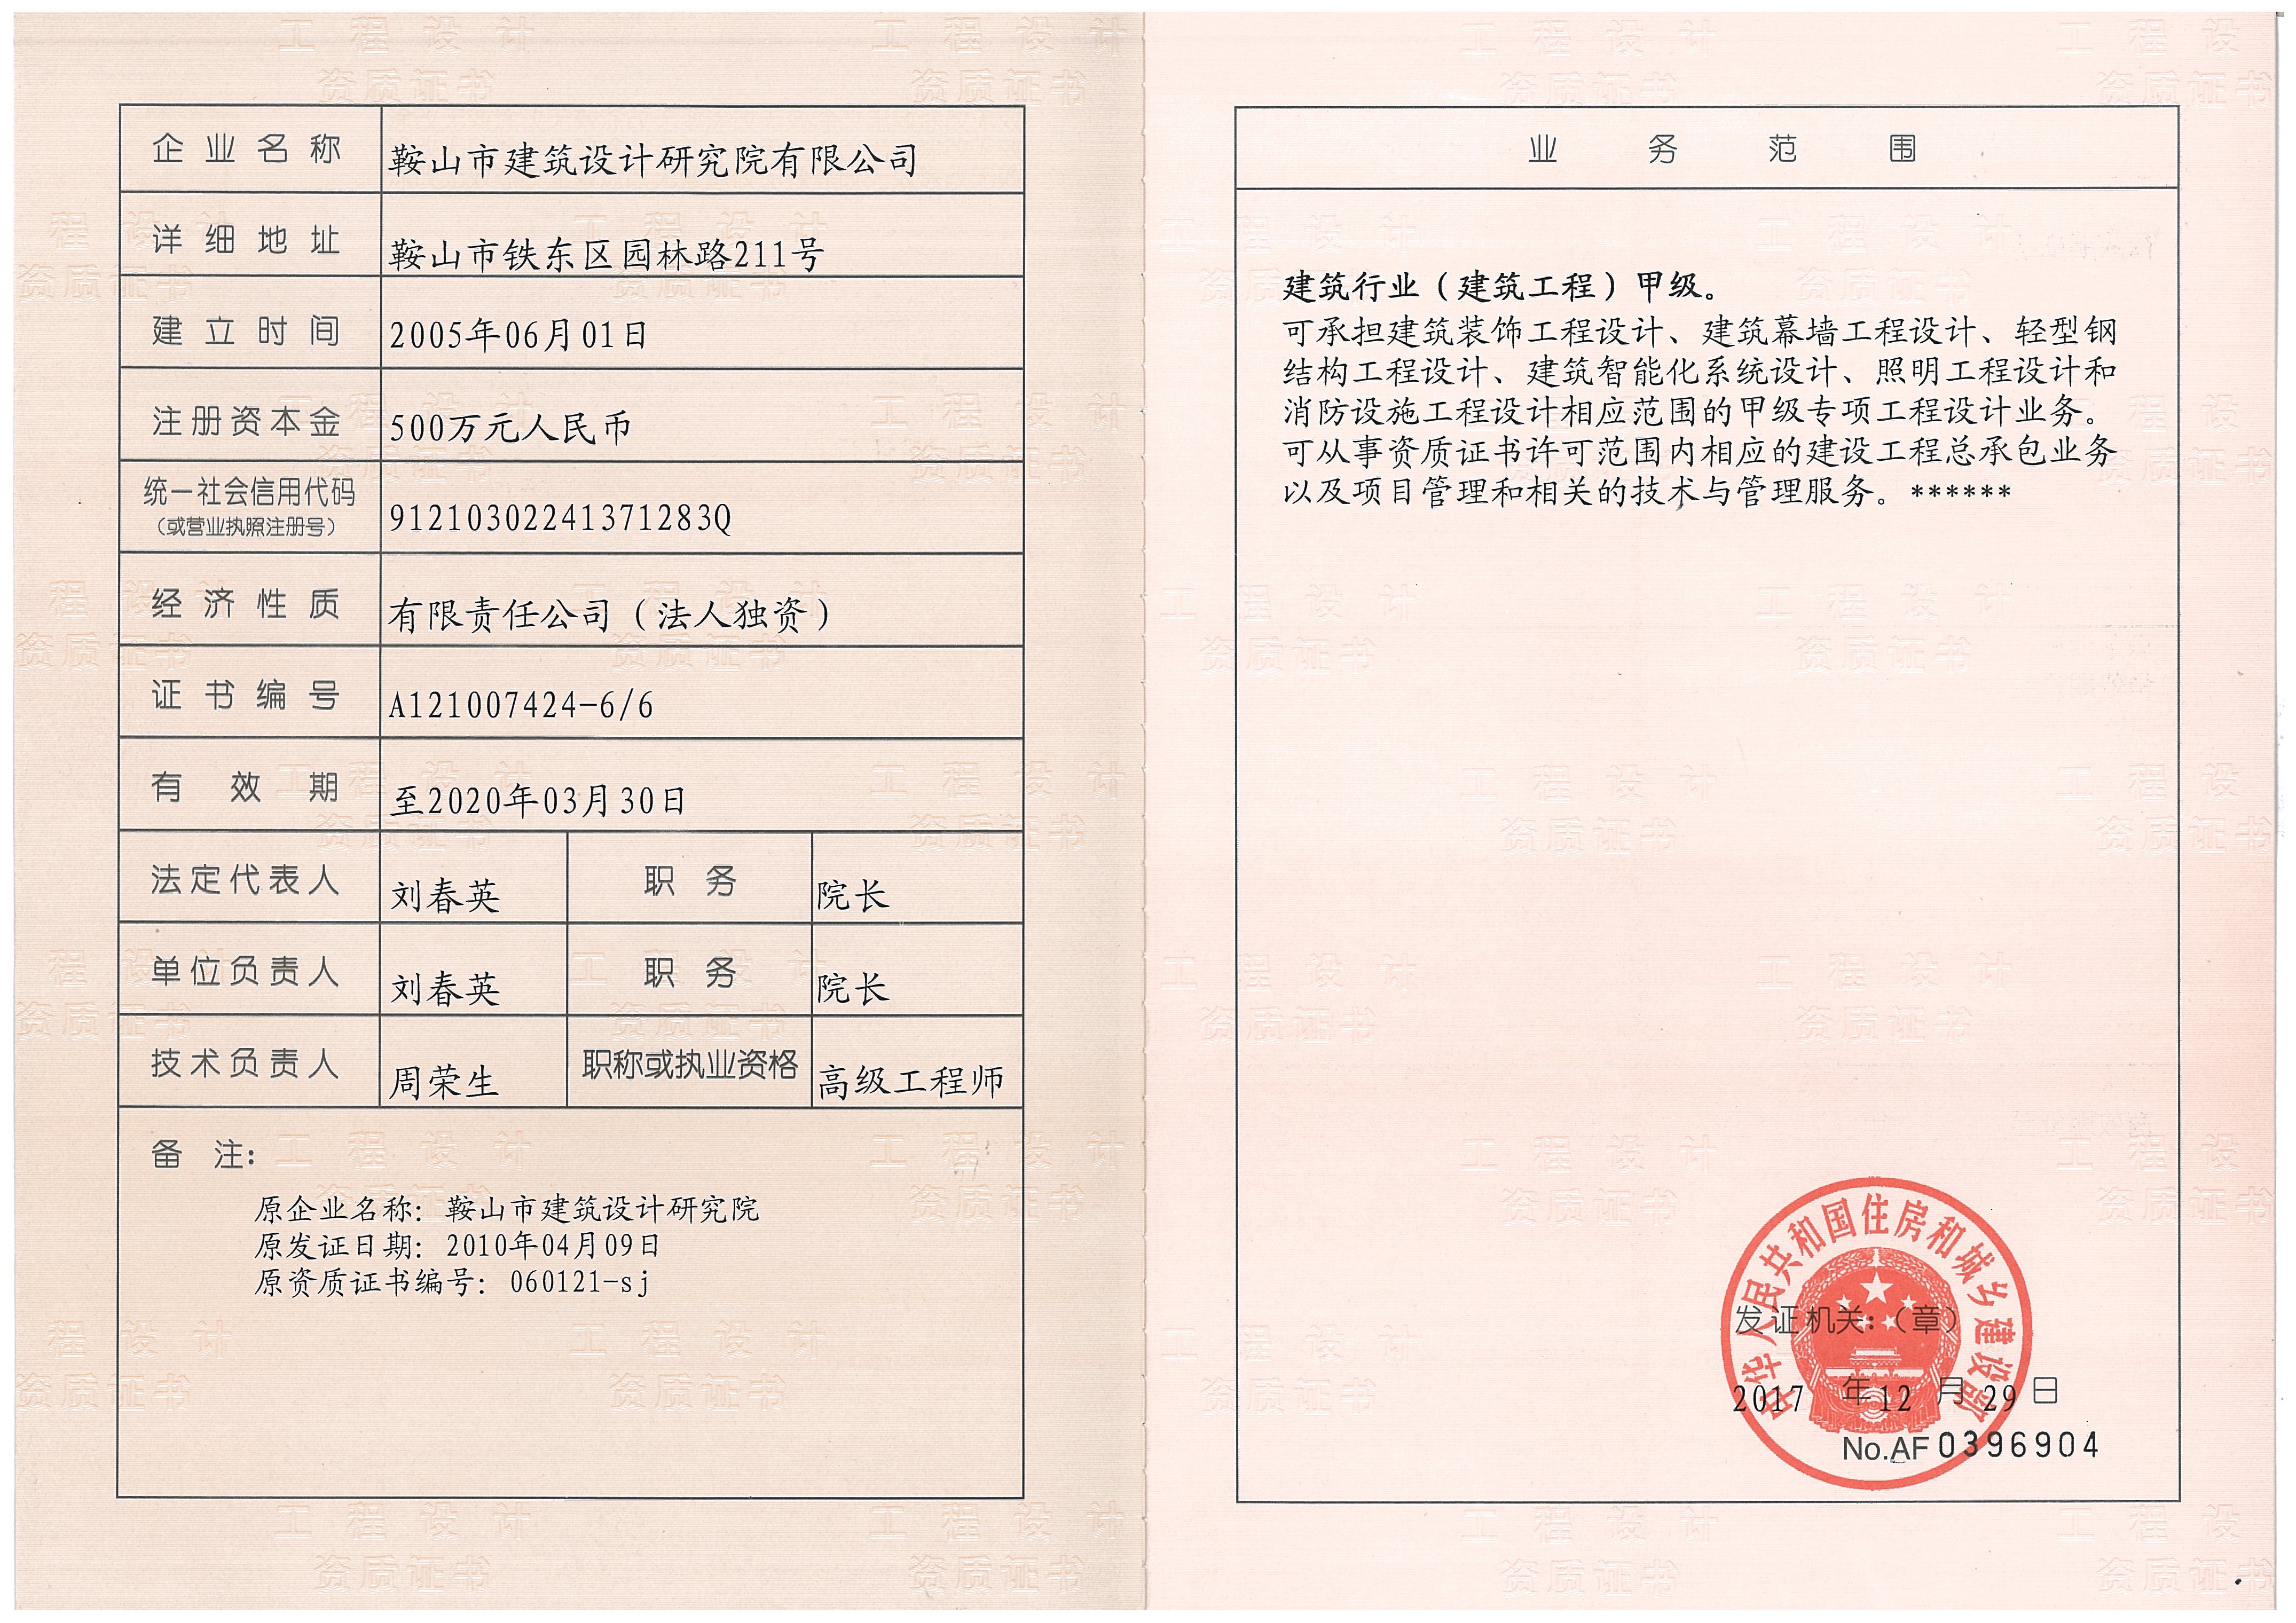 企业名称 鞍山市建筑设计研究院有限公司
详细地址 鞍山市铁东区园林路211号
建立时间 2005年06月01日
注册资本金 500万元人民币
统一社会信用代码
（或营业执照注册号） 91210302241371283Q
经济性质 有限责任公司（法人独资）
证书编号 A121007424-6/6
有效期 至2020年03月30日
法定代表人 刘春英 职务 院长
单位负责人 刘春英 职务 院长
技术负责人 周荣生 职称或执业资格 高级工程师
备注：
原企业名称：鞍山市建筑设计研究院
原发证日期：2010年04月09日
原资质证书编号：060121-sj
业务范围
建筑行业（建筑工程）甲级。
可承担建筑装饰工程设计、建筑幕墙工程设计、轻型钢
结构工程设计、建筑智能化系统设计、照明工程设计和
消防设施工程设计相应范围的甲级专项工程设计业务。
可从事资质证书许可范围内相应的建设工程总承包业务
以及项目管理和相关的技术与管理服务。******
中华人民共和国住房和城乡建设部
发证机关：（章）
2017年12月29日
No.AF0396904
工程设计
资质证书